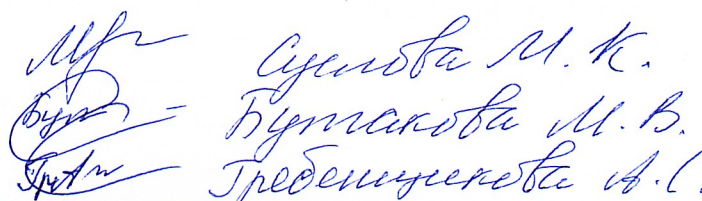 Суслова М. К.
Бутакова М. В.
Гребенщикова А. С.